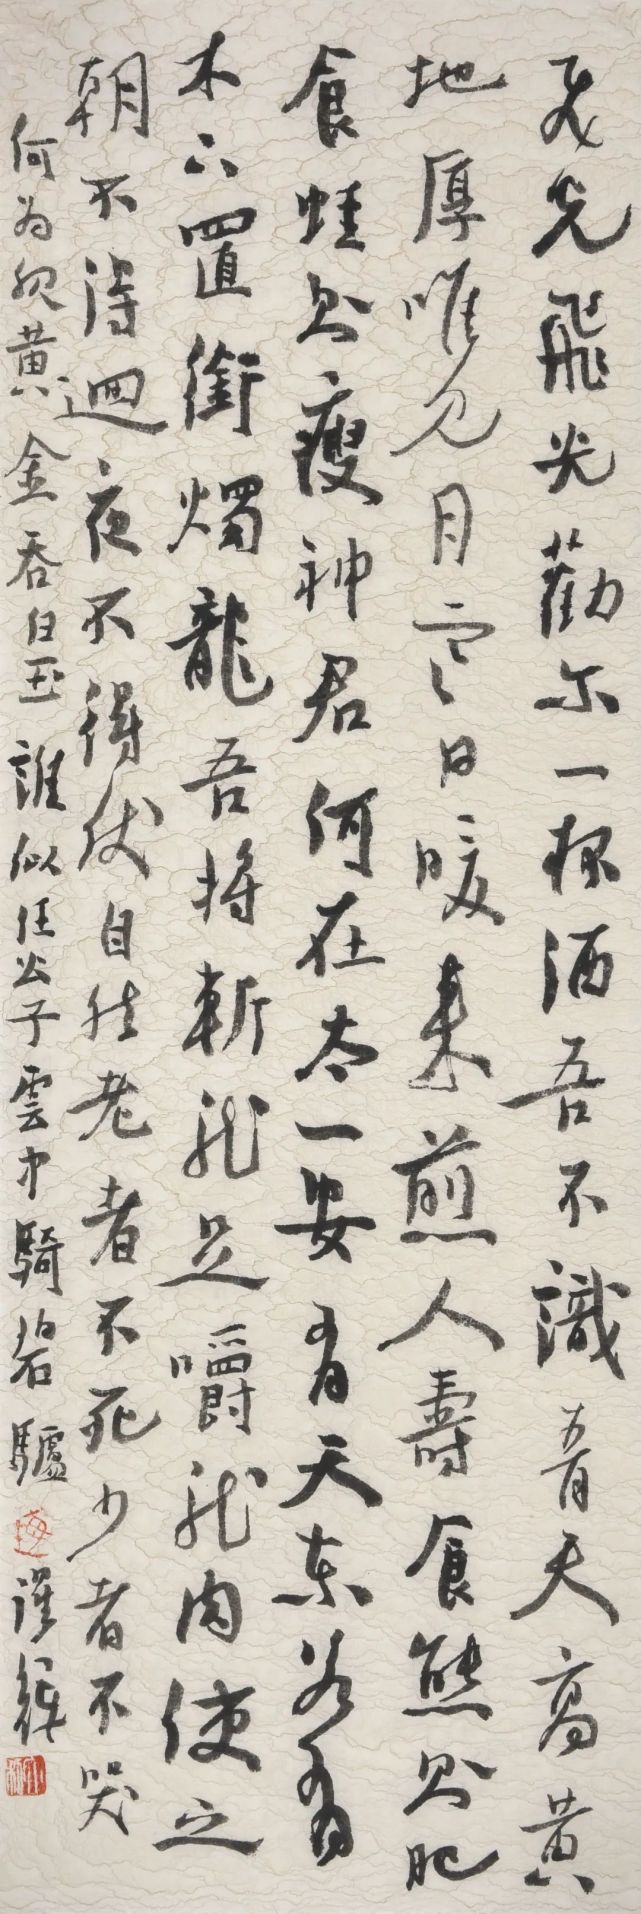 飞光飛光勸尔一杯酒吾不識青天高黄
地厚唯见月寒日暖来煎人壽食熊则肥
食蛙则瘦神君何在太一安有天东若有
木下置銜燭龍吾将斬龙足嚼龙肉使之
朝不得迴夜不得伏自然老者不死少者不哭
何为服黄金吞白玉誰似任公子雲中騎碧驢